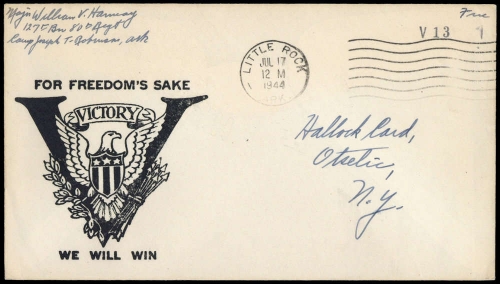 Major William V. Hannay
127th Bn 80th Regt
Camp Joseph T. Robinson, Ark
Free
V 13
LITTLE ROCK
JUL 17
12 M
1944
ARK.
FOR FREEDOM'S SAKE
VICTORY
WE WILL WIN
Hallock Card,
Otselic,
N.Y.